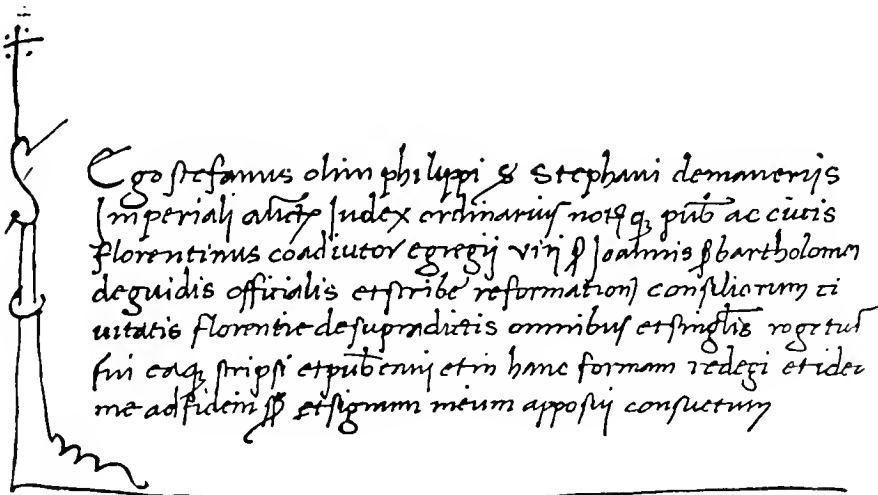 Ego stefanus olim philippi S Stephani demaneriis
Imperiali auct Judex ordinarius notq q, pub ac civis
florentinus coadiutor egregij viri Joannis bartholomei
deguidis officialis etscribe reformation consiliorum ci
vitatis florentie desupradictis omnibus etsinglis rogatus
fui eaq, scripsi etpubcavi etin hanc formam redegi etideo
me adfidem etsignum meum apposuj consuetum